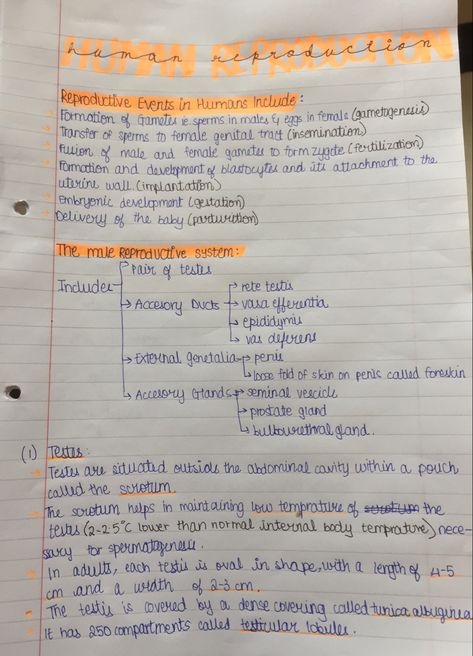 human reproduction
HUMAN REPRODUCTION
Reproductive Events in Humans Include:
→ Formation of Gametes ie. sperms in males & eggs in female (gametogenesis)
→ Transfer of sperms to female genital tract (insemination)
→ Fusion of male and female gametes to form zygote (fertilization)
→ Formation and development of blastocytes and its attachment to the
uterine wall. (implantation)
→ Embryonic development (gestation)
→ Delivery of the baby (parturition)
The male Reproductive system:
Includes → Pair of testes
→ Accesory Ducts → rete testis
→ vasa efferentia
→ epididymis
→ vas deferens
→ External Genetalia → penis
→ loose fold of skin on penis called foreskin
→ Accesory Glands → seminal vescicle
→ prostate gland
→ bulbourethral gland.
(1) Testes:
→ Testes are situated outside the abdominal cavity within a pouch
called the scrotum.
→ The scrotum helps in maintaining low temprature of scrotum the
testes (2-2.5°C lower than normal internal body temprature) nece-
ssary for spermatogenesis.
→ In adults, each testis is oval in shape, with a length of 4-5
cm and a width of 2-3 cm.
→ The testis is covered by a dense covering called tunica albuginea
It has 250 compartments called testicular lobules.